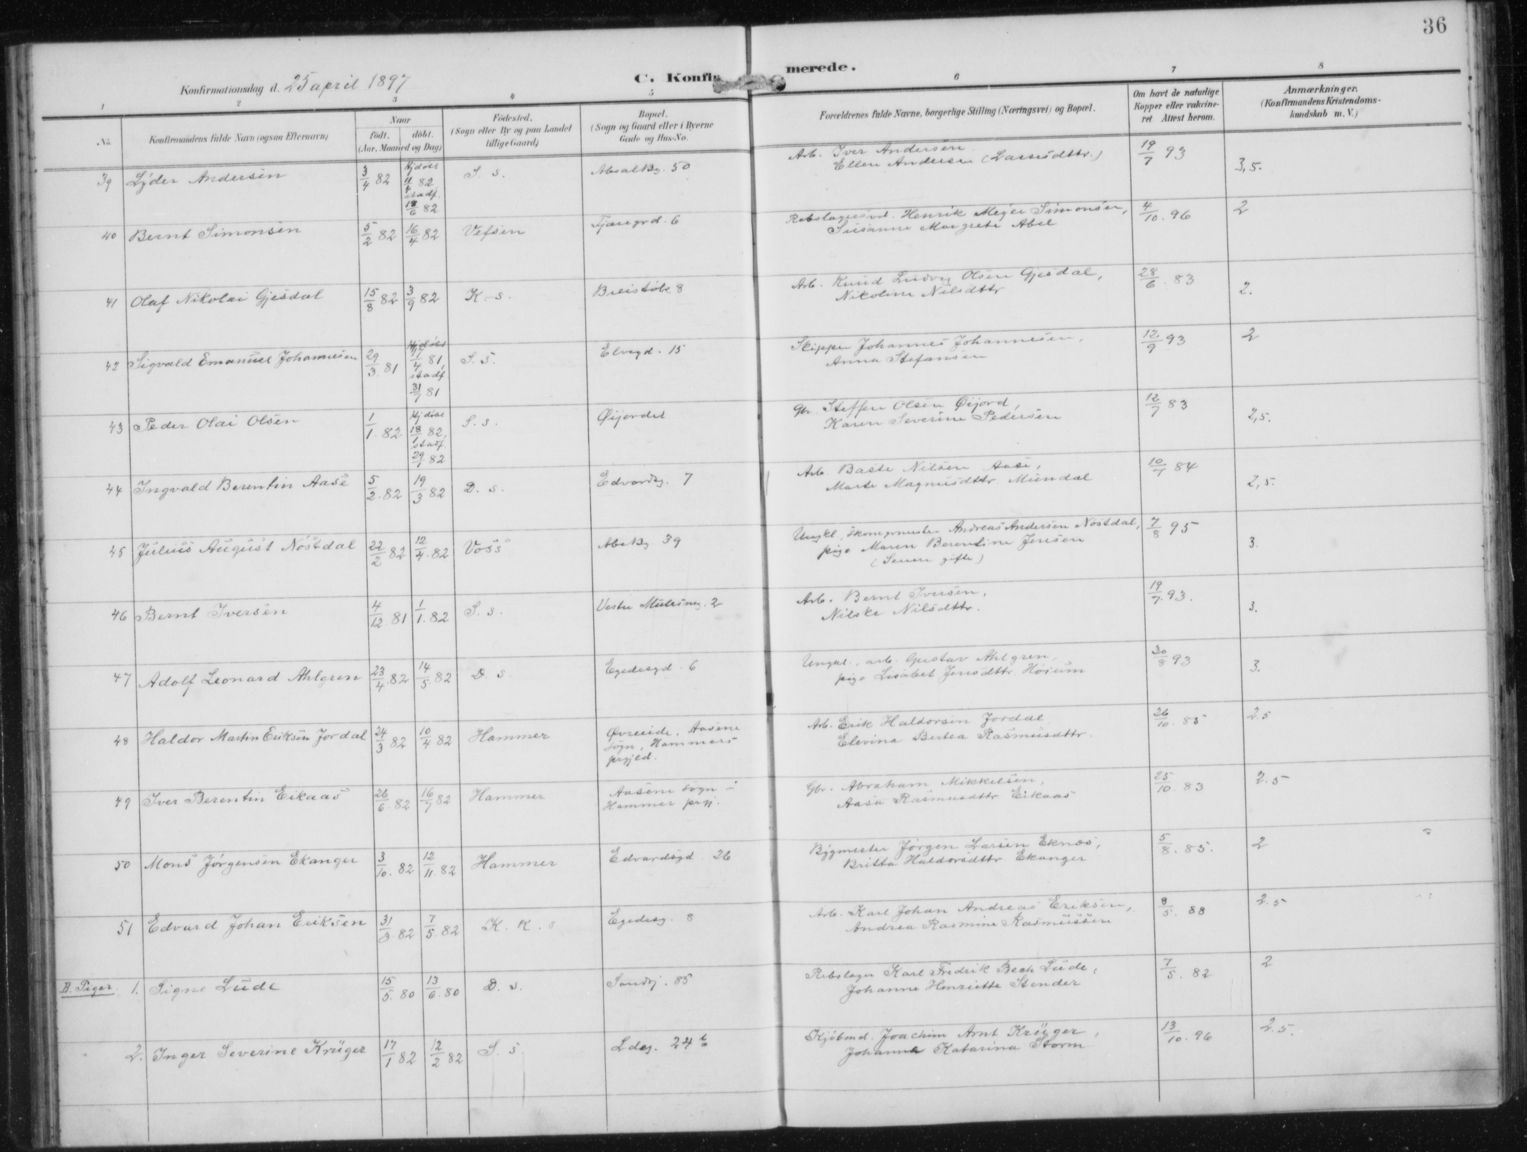 36
C. Konfirmerede.
Konfirmationsdag d. 25 april 1897
1 2 3 4 5 6 7 8
No.
Konfirmandens fulde Navn (ogsaa Efternavn)
Naar
født. døbt.
(Aar, Maaned og Dag)
Fødested.
(Sogn eller By og paa Landet
tillige Gaard)
Bopæl.
(Sogn og Gaard eller i Byerne
Gade og Hus-No.
Forældrenes fulde Navne, borgerlige Stilling (Næringsvei) og Bopæl.
Om havt de naturlige
Kopper eller vakcine-
ret Attest herom.
Anmærkninger.
(Konfirmandens Kristendoms-
kundskab m. V.)
39 Lyder Andersen 3/4 82 Hjdøbt 11/4 82 stadf. 18/6 82 S. s. 50 Arb. Iver Andersen 19/7 93 3,5.
Ellen Andersen (Lassesdttr.)
40 Bernt Simonsen 5/2 82 16/4 82 Vefsen Tjæregrd. 6 Rebslagersvd. Henrik Meyer Simonsen, 4/10. 96 2
Susanna Margrete Abel
41 Olaf Nikolai Gjesdal 15/8 82 3/9 82 K. s. Breistølc 8 Arb. Knud Ludvig Olsen Gjesdal, 28/6. 83 2.
Nikoline Nilsdttr
42 Sigvald Emanuel Johannesen 29/3. 81 Hjdøbt 11/4 81, stadf 31/7 81 S. s. Elvegd. 15 Skipper Johannes Johannesen, 12/9 93 2
Anna Stefansen
43 Peder Olai Olsen 1/1. 82 Hjdøbt 18/1 82, stadf. 29/7 82 S. s. Øijordet Gbr. Steffen Olsen Øijord, 12/7 83 2,5.
Karen Severine Pedersen
44 Ingvald Berentin Aase 5/2. 82 19/3 82 D. s. Edvardsg. 7 Arb. Baste Nilsen Aase, 10/7 84 2,5.
Marte Magnusdttr Mundal
45 Julius August Nøstdal 22/2 82 12/4. 82 Voss 39 Ungkl. Andreas Andersen Nøstdal, 7/8 95 3.
pige Maren Berentine Jensen
(Senere gifte)
46 Bernt Iversen 4/12. 81 1/1. 82 S. s. Vestre Muresmg. 2 Arb. Bernt Iversen, 19/7 93. 3.
Nilske Nilsdttr.
47 Adolf Leonard Ahlgren 23/4. 82 14/5. 82 D. s Egedesgd. 6 Ungkl., arb. Gustav Ahlgren, 30/8 93 3.
pige Lisabet Jensdttr Høium
48 Haldor Martin Eriksen Jordal 24/3 82 10/4 82 Hammer Øvreeide, Aasene Arb. Erik Haldorsen Jordal 26/10. 85 2.5
sogn, Hammers Elevina Bertea Rasmusdttr.
prgjeld.
49 Iver Berentin Eikaas 26/6. 82 16/7 82 Hammer Aasene sogn i Gbr. Abraham Mikkelsen, 25/10. 83 2.5
Hammer prgj. Aasa Rasmusdttr Eikaas
50 Mons Jørgensen Ekanger 3/10. 82 12/11. 82 Hammer Edvardsgd. 26 Bygmester Jørgen Larsen Eknæs, 5/8. 85. 2
Britta Haldorsdttr Ekanger
51 Edvard Johan Eriksen 31/3. 82 7/5. 82 K. K. Egedesg. 8 Arb. Karl Johan Andreas Eriksen, 8/5. 88 2.5
Andrea Rasmine Rasmussen
B. Piger. 1. Signe Lude 15/5. 80 13/6. 80 D. s. Sandvj. 85 Rebslager Karl Fredrik Bech Lude, 7/5. 82 2
Johanne Henriette Stender
2. Inger Severine Krüger 17/1 82 12/2 82 S. s. 24 b Kjøbmd. Joachim Arnt Krüger, 13/10. 96 2.5.
Johanna Katarina Storm